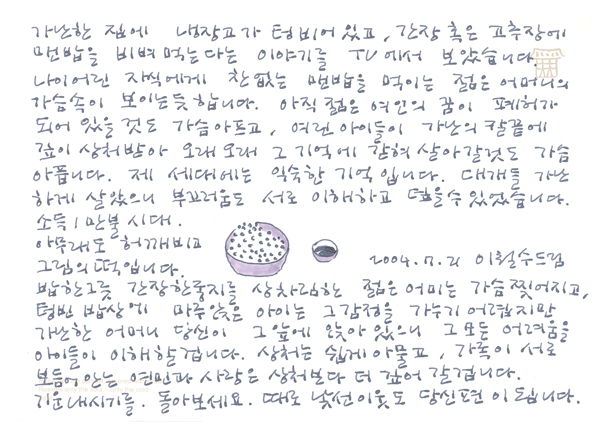 가난한 집에 냉장고가 텅 비어 있고, 간장 혹은 고추장에
맨밥을 비벼 먹는다는 이야기를 TV에서 보았습니다.
나이어린 자식에게 찬없는 맨밥을 먹이는 젊은 어머니의
가슴속이 보이는듯 합니다. 아직 젊은 여인의 꿈이 폐허가
되어 있을 것도 가슴아프고, 여린 아이들이 가난의 칼끝에
깊이 상처받아 오래 오래 그 기억에 갇혀 살아갈것도 가슴
아픕니다. 제 세대에는 익숙한 기억입니다. 대개들 가난
하게 살았으니 부끄러움도 서로 이해하고 덮을수 있었습니다.
소득 1만불 시대.
아무래도 허깨비고
그림의 떡입니다.
2004.7.21 이철수드림
밥한그릇 간장한종지를 상차림한 젊은 어미는 가슴 찢어지고,
텅빈 밥상에 마주앉은 아이는 그감정을 가누기 어렵지만
가난한 어머니 당신이 그 앞에 앉아 있으니 그 모든 어려움을
아이들이 이해할겁니다. 상처는 쉽게 아물고, 가족이 서로
보듬어 안는 연민과 사랑은 상처보다 더 깊어 갈겁니다.
기운내시기를. 돌아보세요. 때로 낯선이웃도 당신편이 됩니다.